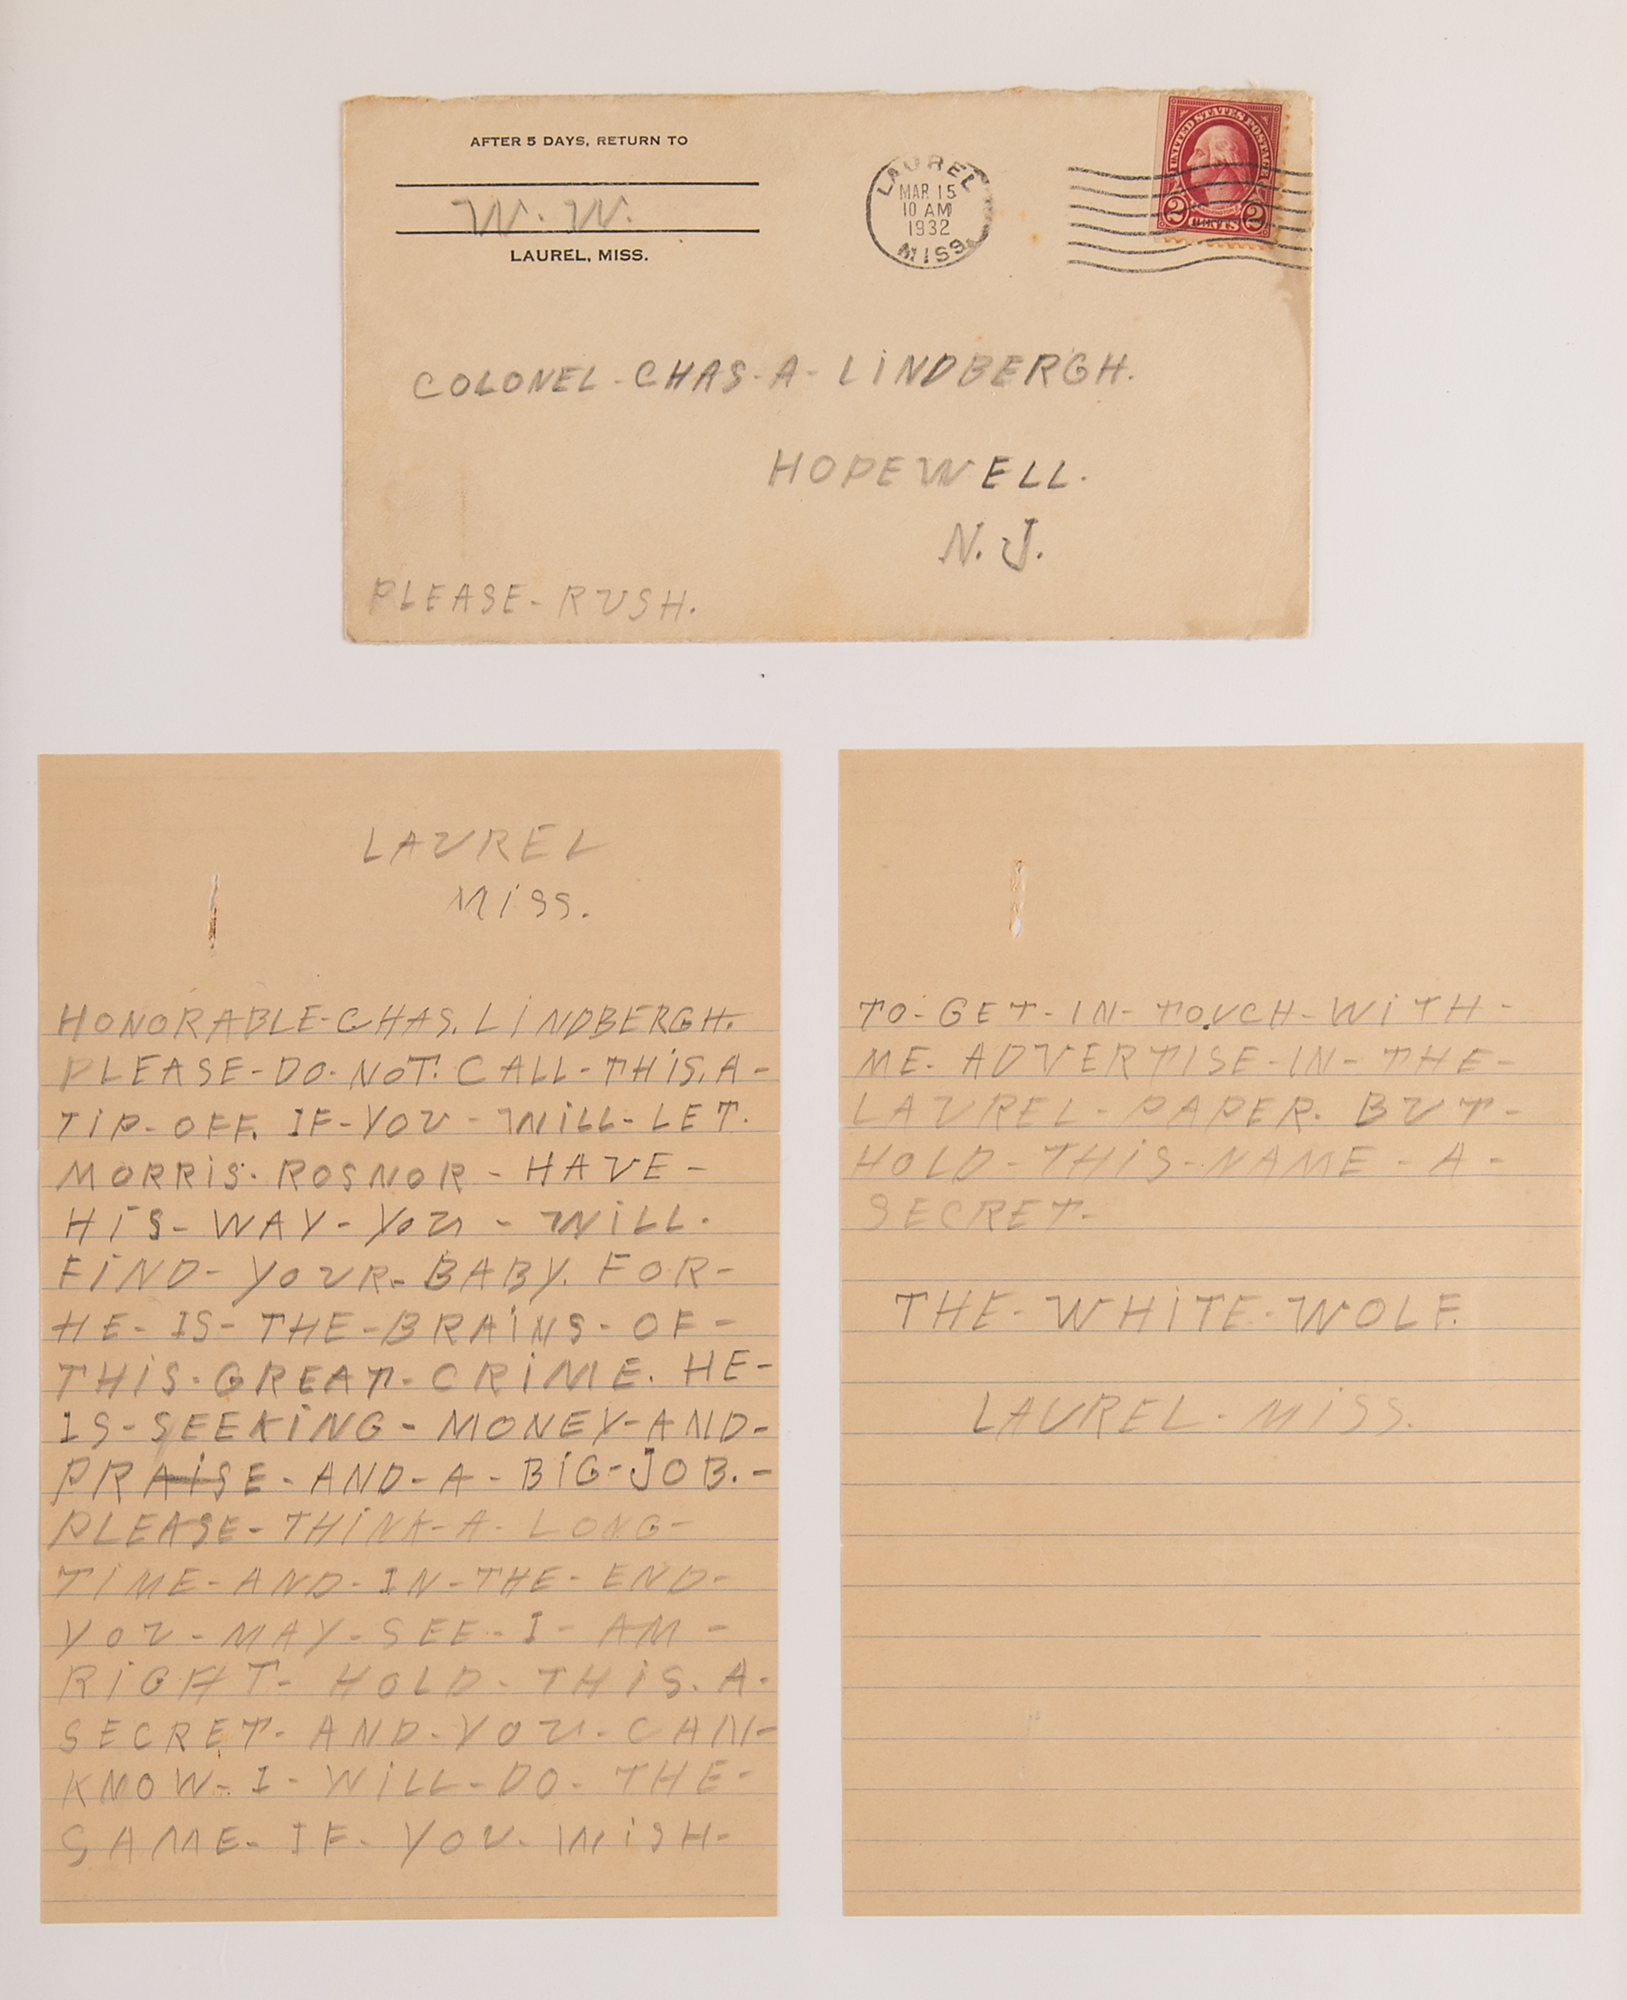 AFTER 5 DAYS, RETURN TO
W. W.
LAUREL, MISS.
LAUREL
MAR 15
10 AM
1932
MISS.
UNITED STATES POSTAGE
2 CENTS 2
COLONEL-CHAS-A-LiNDBERGH.
HOPEWELL.
N.J.
PLEASE-RUSH.
LAUREL
MiSS.
HONORABLE-CHAS. LiNDBERGH.
PLEASE-DO-NOT. CALL-THiS.A-
TIP-OFF. IF-YOU-WiLL-LET.
MORRiS. ROSNOR-HAVE-
HiS-WAY-YOU-WiLL.
FiND-YOUR-BABY. FOR-
HE-IS-THE-BRAiNS-OF-
THiS-GREAT-CRiME. HE-
IS-SEEKiNG-MONEY-AND-
PRAiSE-AND-A-BiG-JOB.-
PLEASE-THiNK-A-LONG-
TiME-AND-IN-THE-END-
YOU-MAY-SEE-I-AM-
RiGHT-HOLD-THiS.A-
SECRET-AND-YOU-CAN-
KNOW-I-WiLL-DO-THE-
SAME-IF-YOU-WiSH-
TO-GET-IN-TOUCH-WiTH-
ME-ADVERTISE-IN-THE-
LAUREL-PAPER. BUT-
HOLD-THiS-NAME-A-
SECRET-
THE-WHiTE-WOLF.
LAUREL-MiSS.